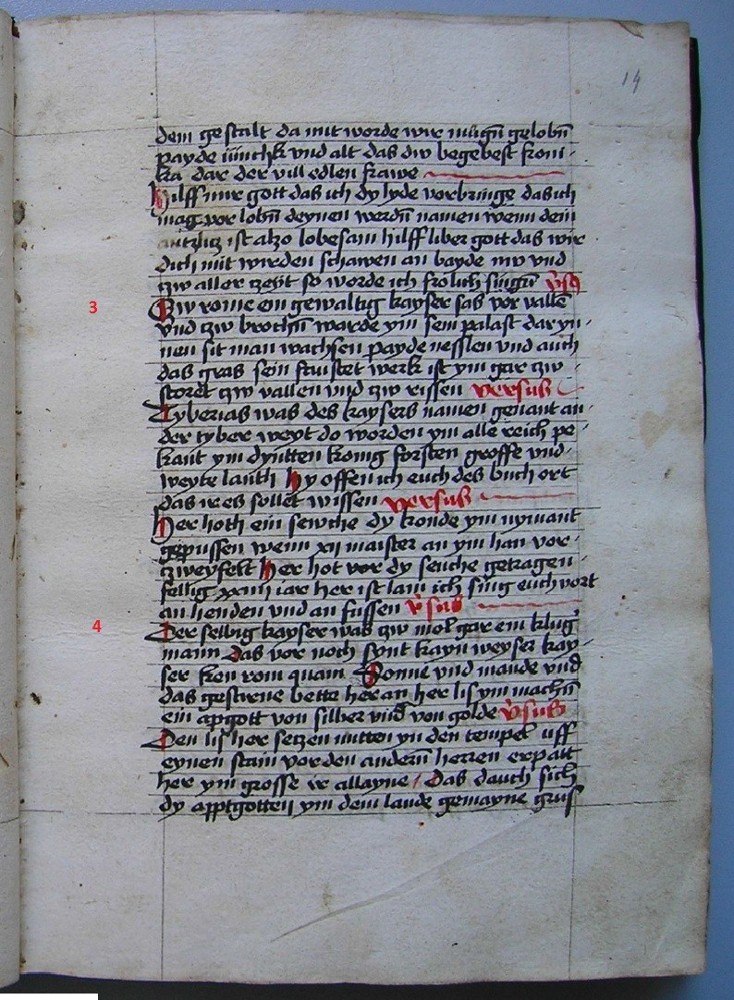 14
dem gestalt da mit worde wir mügn̄ gelobn̄
payde iünchk vnd alt das dw begebest kroni-
ka dar der vill edlen frawe
hilff mir gott das ich dy lyde vorbringe das ich
mag vor lobn̄ deynen werdn̄ namen wenn dein
antzlicz ist alzo lobesam hilff liber gott das wir
dich mit wirden schawen an bayde nw vnd
czw aller czeyt so worde ich frolich singn̄ v̄sus
3
Czw rome ein gewaltig kayser sas vor vallē
vnd czw brochn̄ warde ym sein palast dar yn-
nen sit man wachsen payde nesslen vnd auch
das gras sein werk ist ym gar czw-
storet czw vallen vnd czw rissen versus
Tyberias was des kaysers namen genant an-
der tyber weyt do worden ym alle reich pe-
kant ym dyntten konig forsten grosse vnd-
weyte lauth hy offen ich euch des buch ort
das ir es sollet wissen versus
Her hoth ein sewche dy konde ym nymant
gepussen wenn xii maister an ym han vor-
czweyfelt her hot vor dy seuche getragen-
fellig xxiiii iar her ist lam ich sing euch vort
an henden vnd an fussen v̄sus
4
Der selbig kayser was czw mol gar ein klug
mann das vor noch synt kayn weyser kay-
ser ken rom quam Sonne vnd mande vnd
das gestirne bette her an her lis ym machn̄
ein apgott von silber vnd von golde v̄sus
Den lis her setzen mitten yn den tempel uff
eynen stain vor den andern̄ herren erpalt
her ym grosse ir allayne / das dauch sich
dy apptgotten ym dem lande gemayne grus